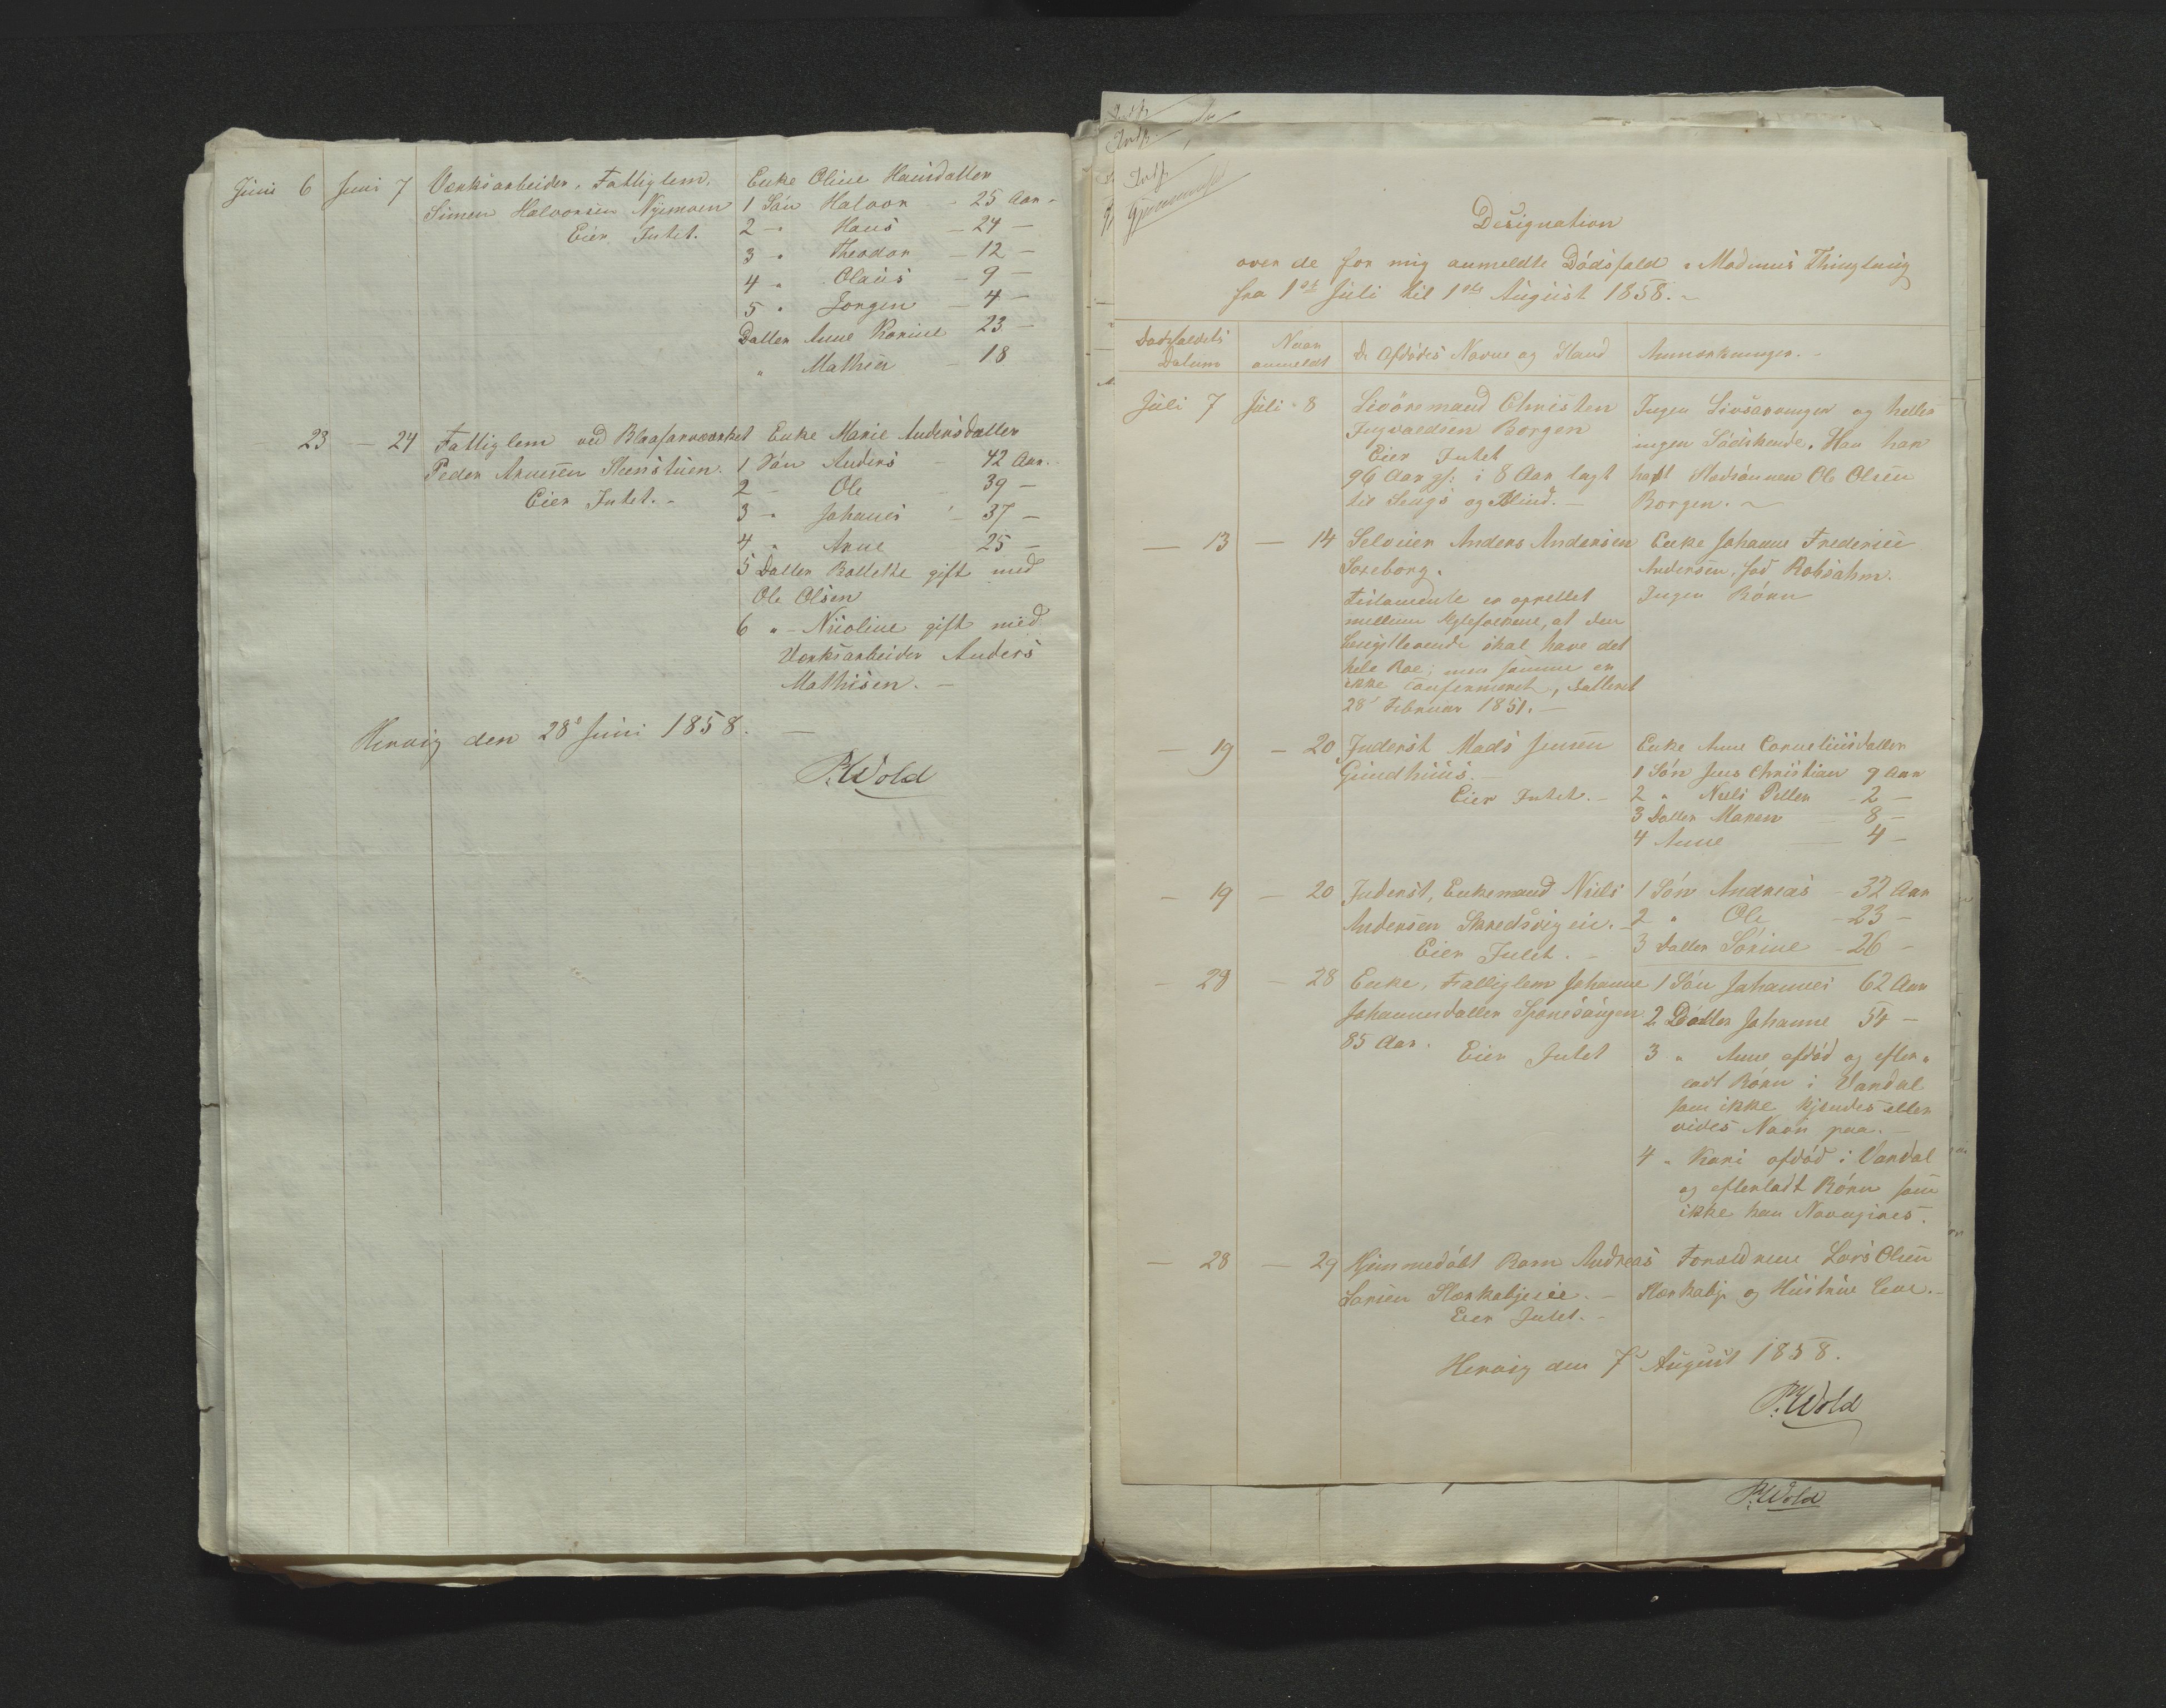 Juni 6 Juni 7 Værksarbeider, Fattiglem, Enke Oline Hansdatter
Simen Halvorsen Nyemoen 1 Søn Halvor - 25 Aar -
Eier Intet. 2 - " Hans - 24 -
3 " Theodor - 12 -
4 - " Olaus - 9 -
5 " Jørgen - 4 -
Datter Anne Karine 23 -
" Mathea - 18
23 - 24 Fattiglem ved Blaafarveværket Enke Marie Andersdatter
Peder Arnesen Steenstuen. 1 Søn Anders - 42 Aar.
Eier Intet. - 2 - Ole - 39 -
3 - " Johannes - 37 -
4 " Arne 25 -
5 Datter Bollette gift med
Ole Olsen
6 " - Nicoline gift med
Værksarbeider Anders
Mathisen. -
Hervig den 28de Juni 1858. -
P. Wold
Indf.
Indf.
Indf.
Gjennemseet
Designation
over de for mig anmeldte Dødsfald i Modums Thinglaug
fra 1ste Juli til 1ste August 1858. -
Dødsfaldets Datum Naar anmeldt De Afdødes Navne og Stand Anmærkninger. -
Juli 7 Juli 8 Livøremand Christen Ingen Livsarvinger og heller
Ingvaldsen Borgen ingen Sødskende. Han har
Eier Intet
96 Aar gl: i 8 Aar lagt havt Stedsønnen Ole Olsen
til Sengs og Blind. - Borgen. -
- 13 - 14 Selveier Anders Andersen Enke Johanne Frederice
Soneborg. Andersen, fød Robsahm.
Testamente er oprettet Ingen Børn
mellem Ægtefolkene, at den
Længstlevende skal have det
hele Boe; men samme er
ikke confirmeret, datteret
28de Februar 1851. -
- 19 - 20 Inderst Mads Jensen Enke Anne Corneliusdatter
Gundhuus. - 1 Søn Jens Christian 9 Aar
Eier Intet. - 2 " Niels Petter - 2 -
3 Datter Maren 8 -
4 Anne - 4 -
- 19 - 20 Inderst, Enkemand Niels 1 Søn Andreas - 32 Aar
Andersen Skredsvigeie. - 2 " Ole - 23 -
Eier Intet. - 3 Datter Sørine - 26 -
- 28 Enke, Fattiglem Johanne 1 Søn Johannes 62 Aar
Johannesdatter Sponesangen 2 Datter Johanne 54 -
85 Aar. Eier Intet 3 " Anne afdød og efter-
ladt Børn i Vardal
som ikke kjendes eller
vides Navn paa. -
4 " Kari afdød i Vardal
og efterladt Børn som
ikke kan Navngives.
- 28 - 29 Hjemmedøbt Barn Andreas Forældrene Lars Olsen
Larsen Stærkebyeie. - Stærkeby og Hustrue Lene. -
Eier Intet. -
Hervig den 7de August 1858.
P. Wold
P. Wold